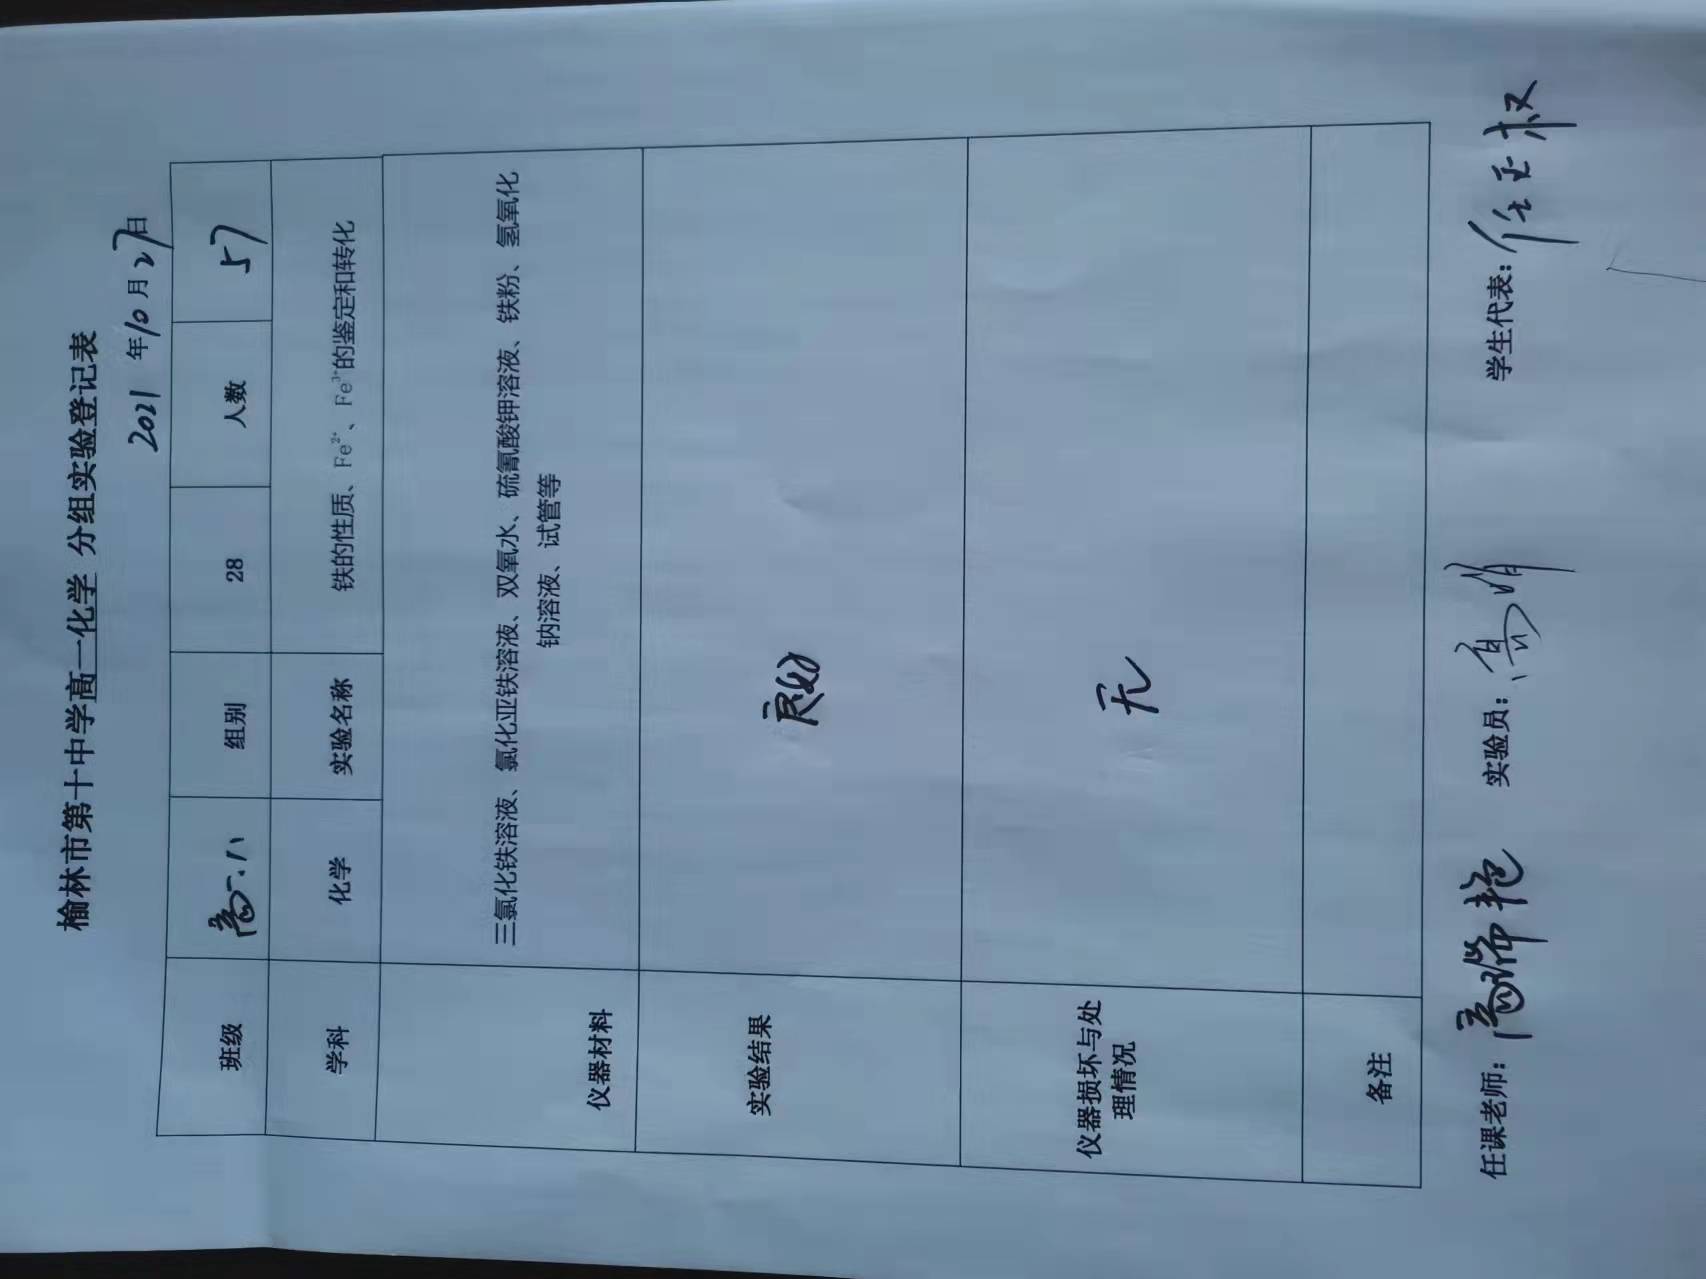 榆林市第十中学高一化学 分组实验登记表
2021 年10月27日
班级 高一.八 组别 28 人数 57
学科 化学 实验名称 铁的性质、Fe²⁺、Fe³⁺的鉴定和转化
三氯化铁溶液、氯化亚铁溶液、双氧水、硫氰酸钾溶液、铁粉、氢氧化
钠溶液、试管等
仪器材料
实验结果 良好
仪器损坏与处
理情况 无
备注
任课老师：高瑞艳 实验员：高 学生代表：任玉权